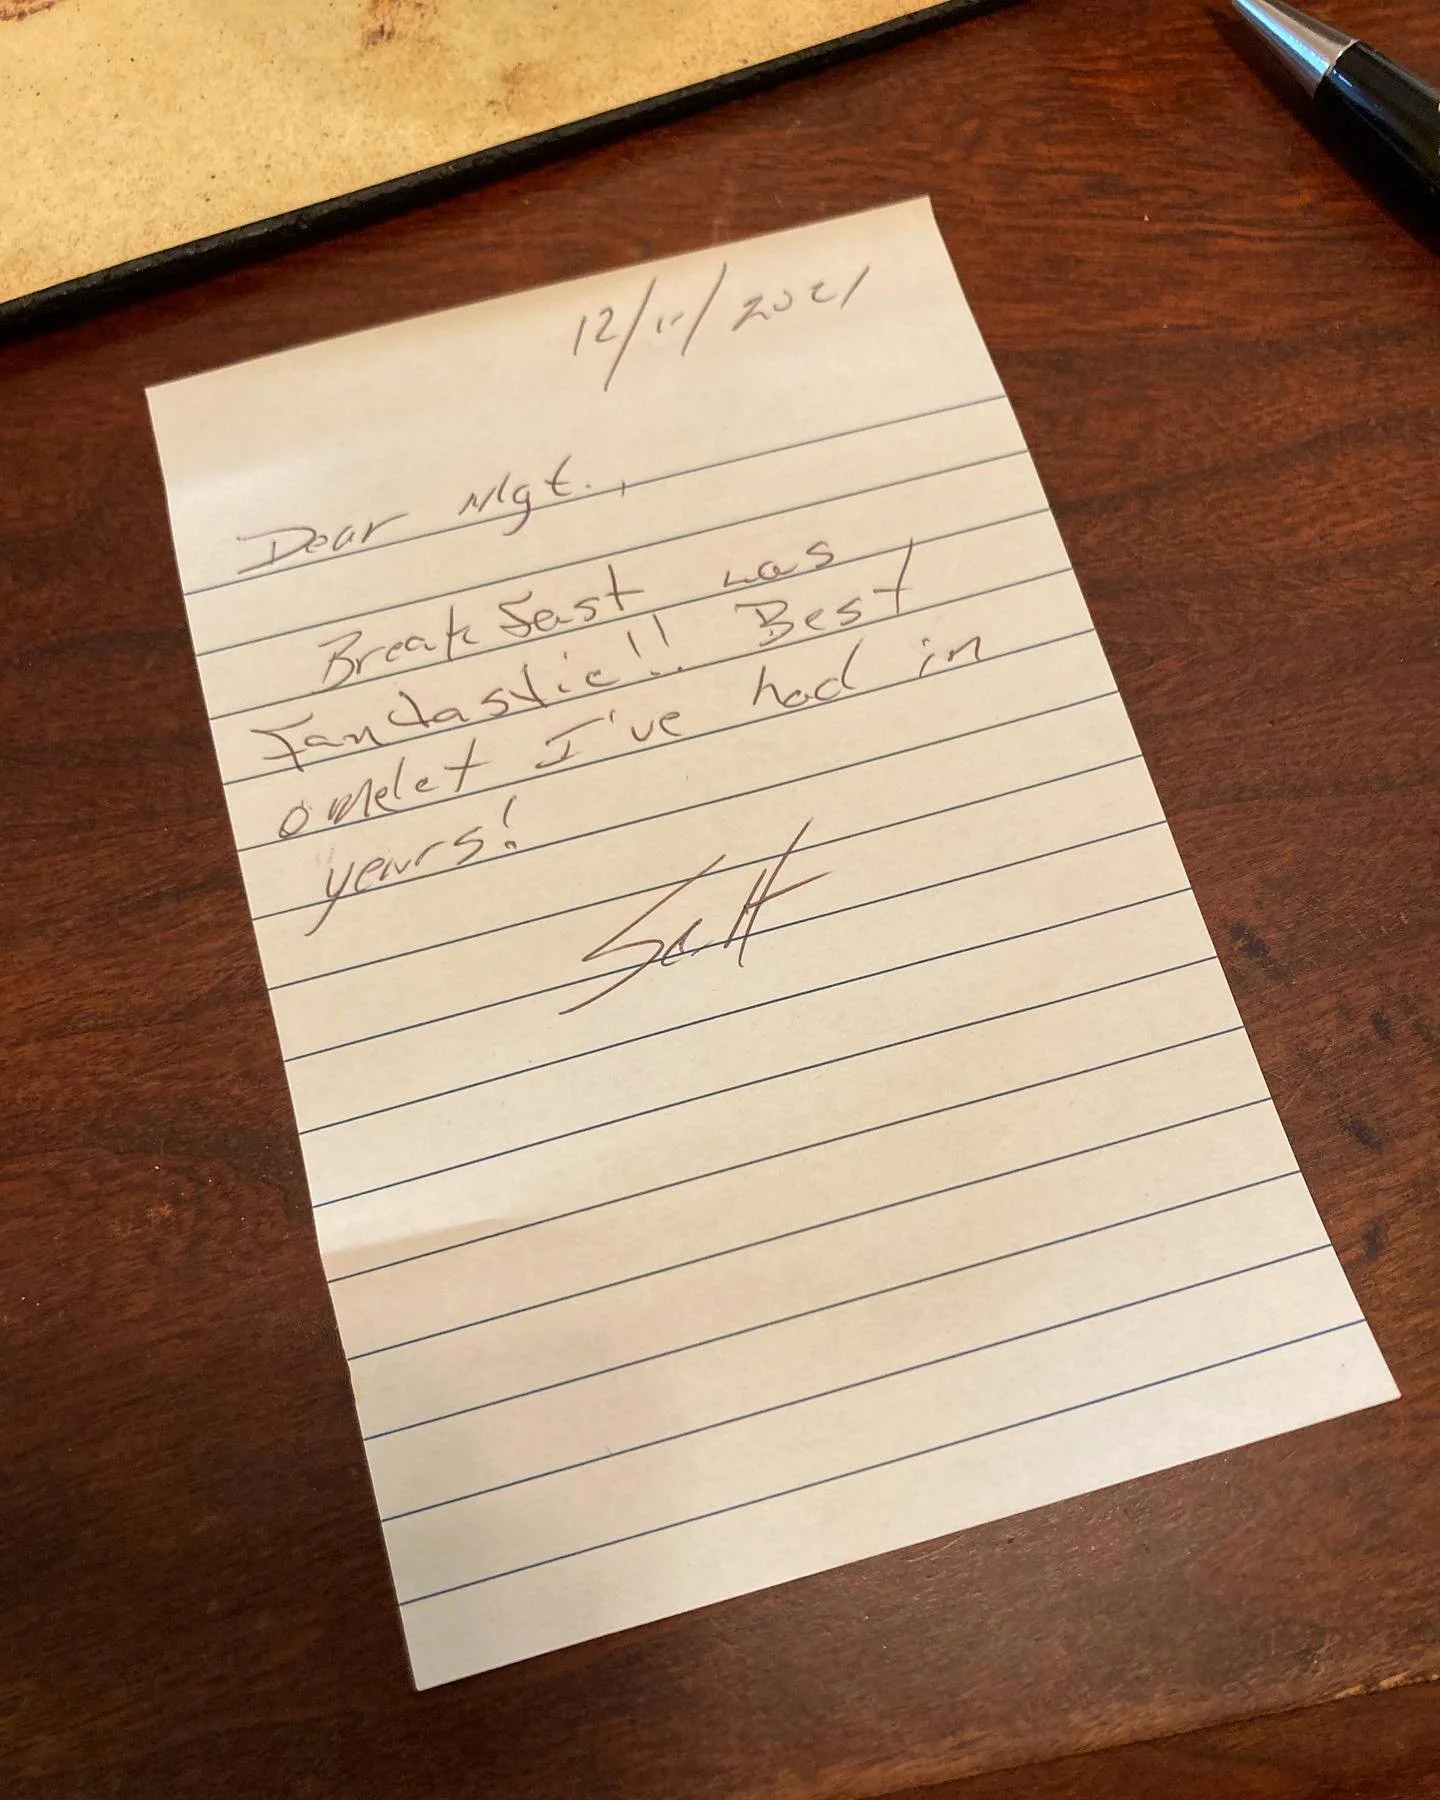 12/11/2021
Dear Mgt.,
Breakfast was
Fantastic!! Best
omelet I've had in
years!
Scott